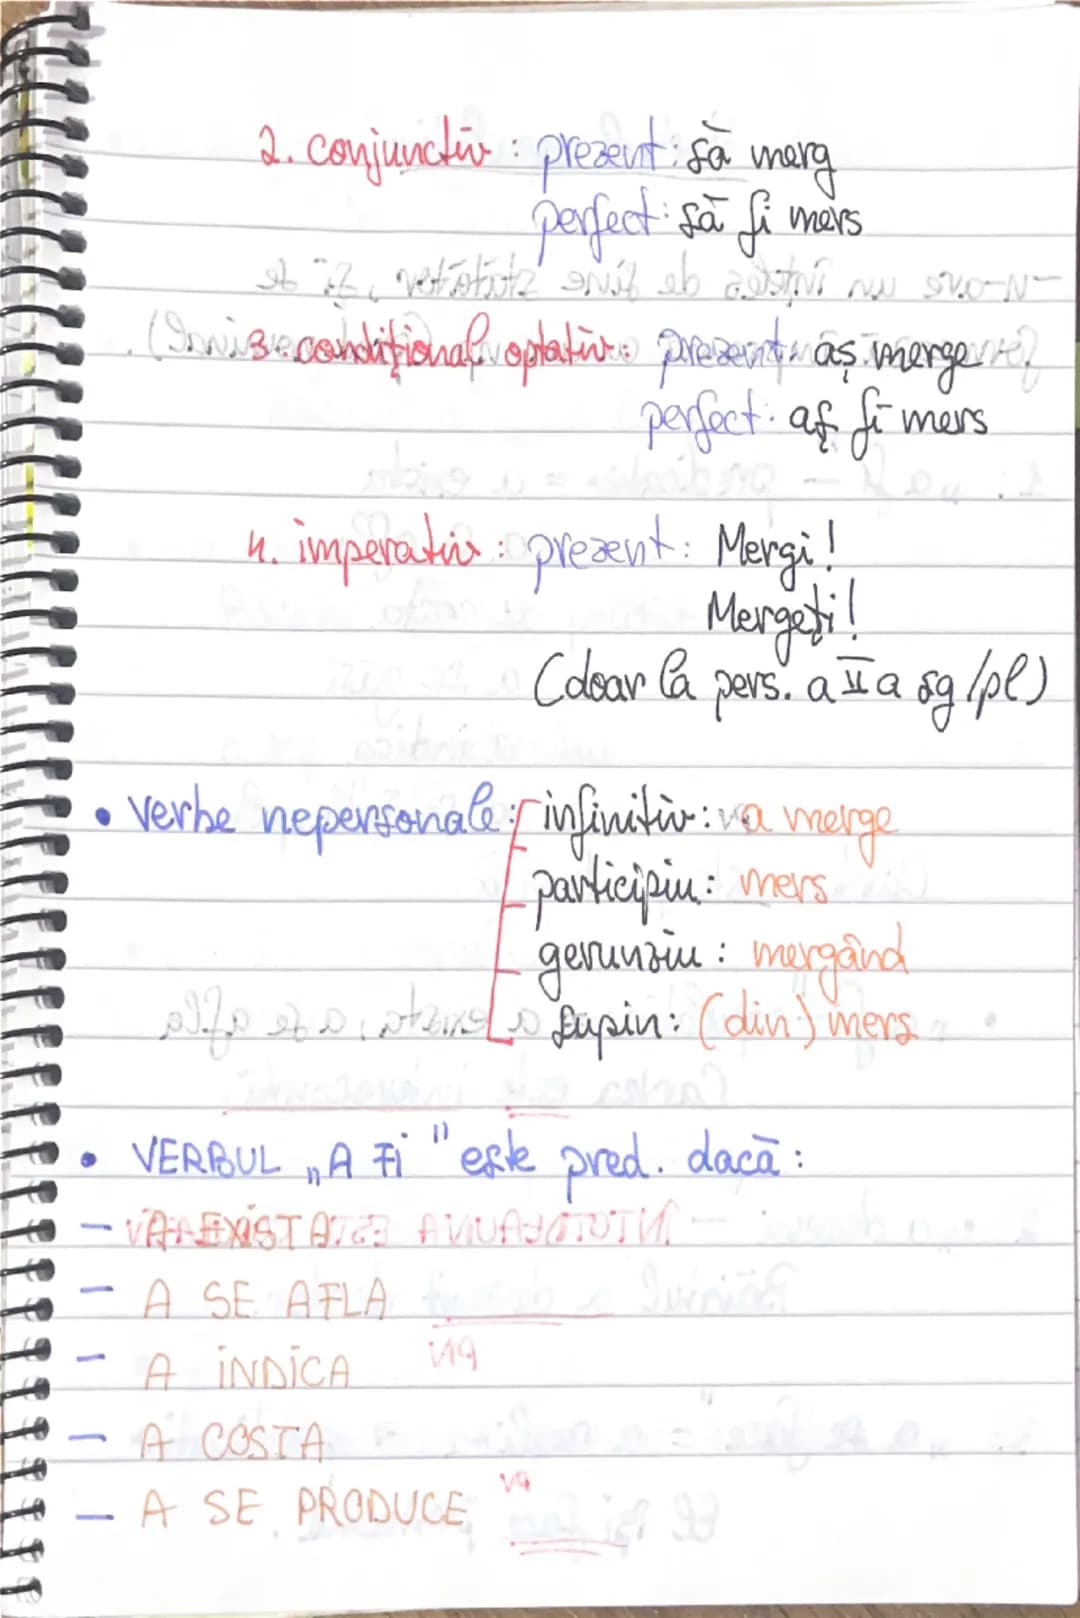 2. conjunctiv : prezent: să merg
perfect: să fi mers
3. condițional optativ: prezent: aș merge
perfect: aș fi mers
4. imperativ : prezent: Mergi!
Mergeți!
(doar la pers. a II a sg/pl)
• Verbe nepersonale: infinitiv: a merge
participiu: mers
gerunziu : mergând
supin: (din) mers
• VERBUL „A Fi" este pred. dacă:
- A EXISTA
- A SE AFLA
- A INDICA
- A COSTA
- A SE PRODUCE